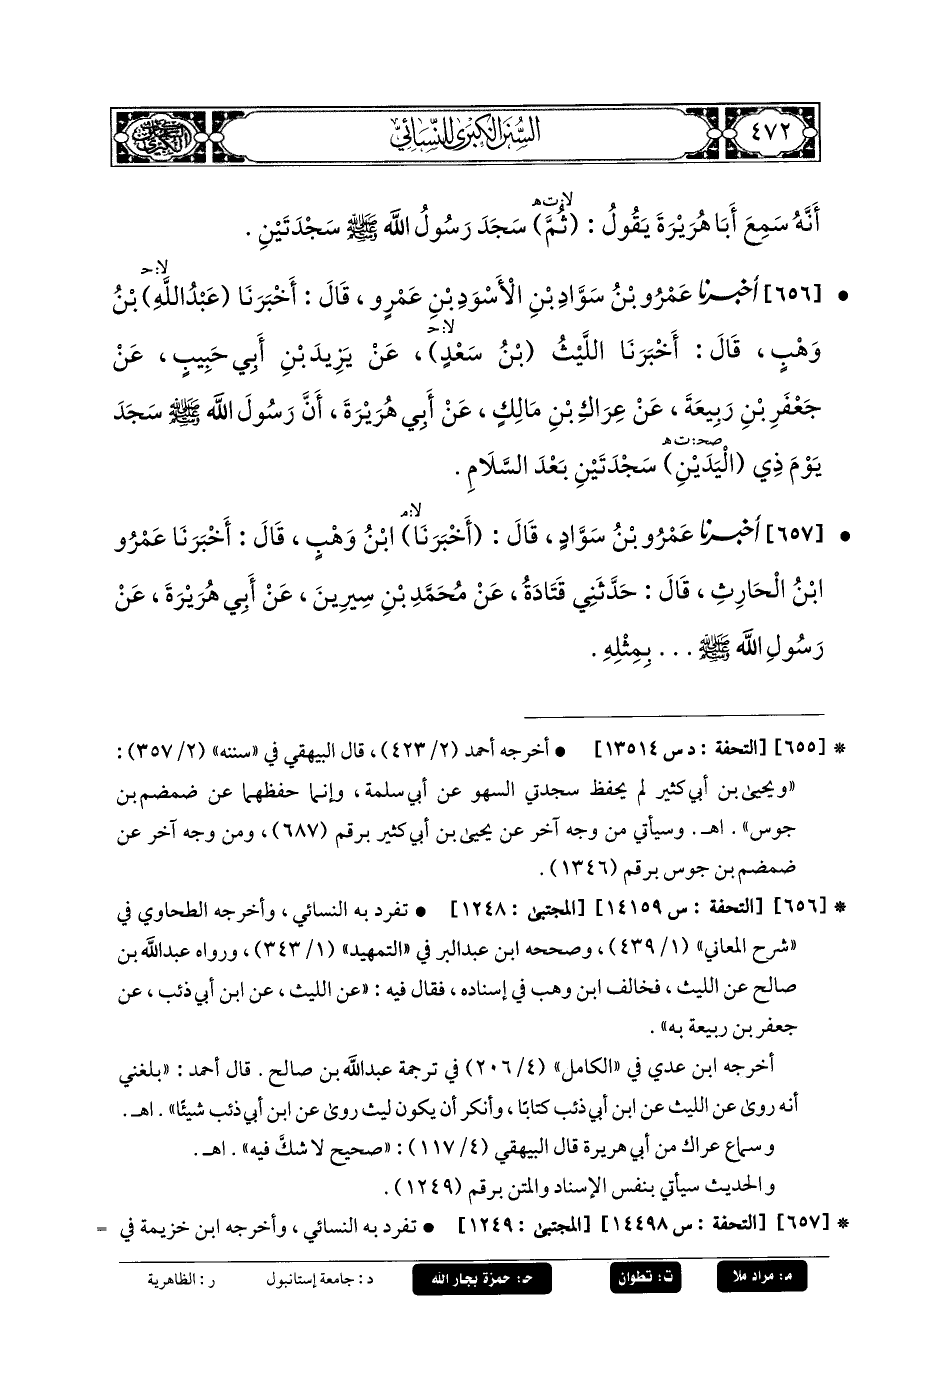 ٤٧٢
السُّنَنُ الْكِبْرَى لِلنَّسَائِيِّ
لا: ت هـ
أَنَّهُ سَمِعَ أَبَا هُرَيْرَةَ يَقُولُ : (ثُمَّ) سَجَدَ رَسُولُ اللَّه ﷺ سَجْدَتَيْنِ .
لا: حـ
• [٦٥٦] أخبرنا عَمْرُو بْنُ سَوَّادِ بْنِ الْأَسْوَدِ بْنِ عَمْرٍو ، قَالَ : أَخْبَرَنَا (عَبْدُ اللَّهِ) بْنُ
لا: حـ
وَهْبٍ ، قَالَ : أَخْبَرَنَا اللَّيْثُ (بْنُ سَعْدٍ) ، عَنْ يَزِيدَ بْنِ أَبِي حَبِيبٍ ، عَنْ
جَعْفَرِ بْنِ رَبِيعَةَ ، عَنْ عِرَاكِ بْنِ مَالِكٍ ، عَنْ أَبِي هُرَيْرَةَ ، أَنَّ رَسُولَ اللَّه ﷺ سَجَدَ
صحـ: ت هـ
يَوْمَ ذِي (الْيَدَيْنِ) سَجْدَتَيْنِ بَعْدَ السَّلَامِ .
لا: م
• [٦٥٧] أخبرنا عَمْرُو بْنُ سَوَّادٍ ، قَالَ : (أَخْبَرَنَا) ابْنُ وَهْبٍ ، قَالَ : أَخْبَرَنَا عَمْرُو
ابْنُ الْحَارِثِ ، قَالَ : حَدَّثَنِي قَتَادَةُ ، عَنْ مُحَمَّدِ بْنِ سِيرِينَ ، عَنْ أَبِي هُرَيْرَةَ ، عَنْ
رَسُولِ اللَّه ﷺ . . . بِمِثْلِهِ .
* [٦٥٥] [التحفة : د س ١٣٥١٤] • أخرجه أحمد (٢/ ٤٢٣) ، قال البيهقي في «سننه» (٢/ ٣٥٧) :
«ويحيى بن أبي كثير لم يحفظ سجدتي السهو عن أبي سلمة ، وإنما حفظهما عن ضمضم بن
جوس» . اهـ . وسيأتي من وجه آخر عن يحيى بن أبي كثير برقم (٦٨٧) ، ومن وجه آخر عن
ضمضم بن جوس برقم (١٣٤٦) .
* [٦٥٦] [التحفة : س ١٤١٥٩] [المجتبى : ١٢٤٨] • تفرد به النسائي ، وأخرجه الطحاوي في
«شرح المعاني» (١/ ٤٣٩) ، وصححه ابن عبدالبر في «التمهيد» (١/ ٣٤٣) ، ورواه عبدالله بن
صالح عن الليث ، فخالف ابن وهب في إسناده ، فقال فيه : «عن الليث ، عن ابن أبي ذئب ، عن
جعفر بن ربيعة به» .
أخرجه ابن عدي في «الكامل» (٤/ ٢٠٦) في ترجمة عبدالله بن صالح . قال أحمد : «بلغني
أنه روى عن الليث عن ابن أبي ذئب كتابًا ، وأنكر أن يكون ليث روى عن ابن أبي ذئب شيئًا» . اهـ .
وسماع عراك من أبي هريرة قال البيهقي (٤/ ١١٧) : «صحيح لا شكَّ فيه» . اهـ .
والحديث سيأتي بنفس الإسناد والمتن برقم (١٢٤٩) .
* [٦٥٧] [التحفة : س ١٤٤٩٨] [المجتبى : ١٢٤٩] • تفرد به النسائي ، وأخرجه ابن خزيمة في =
م: مراد ملا ت: تطوان حـ: حمزة بجار الله د: جامعة إستانبول ر: الظاهرية